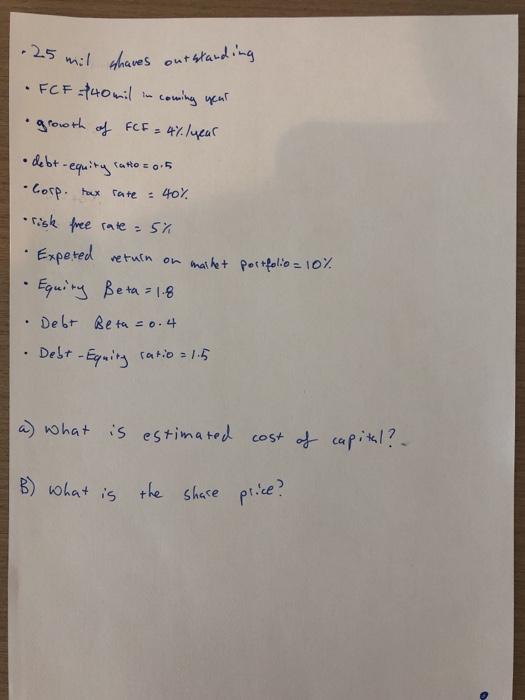 • 25 mil shares outstanding
• FCF = $40 mil in coming year
• growth of FCF = 4%/year
• debt-equity ratio = 0.5
• Corp. tax rate = 40%
• risk free rate = 5%
• Expeted return on market portfolio = 10%
• Equity Beta = 1.8
• Debt Beta = 0.4
• Debt-Equity ratio = 1.5
a) what is estimated cost of capital?
B) what is the share price?